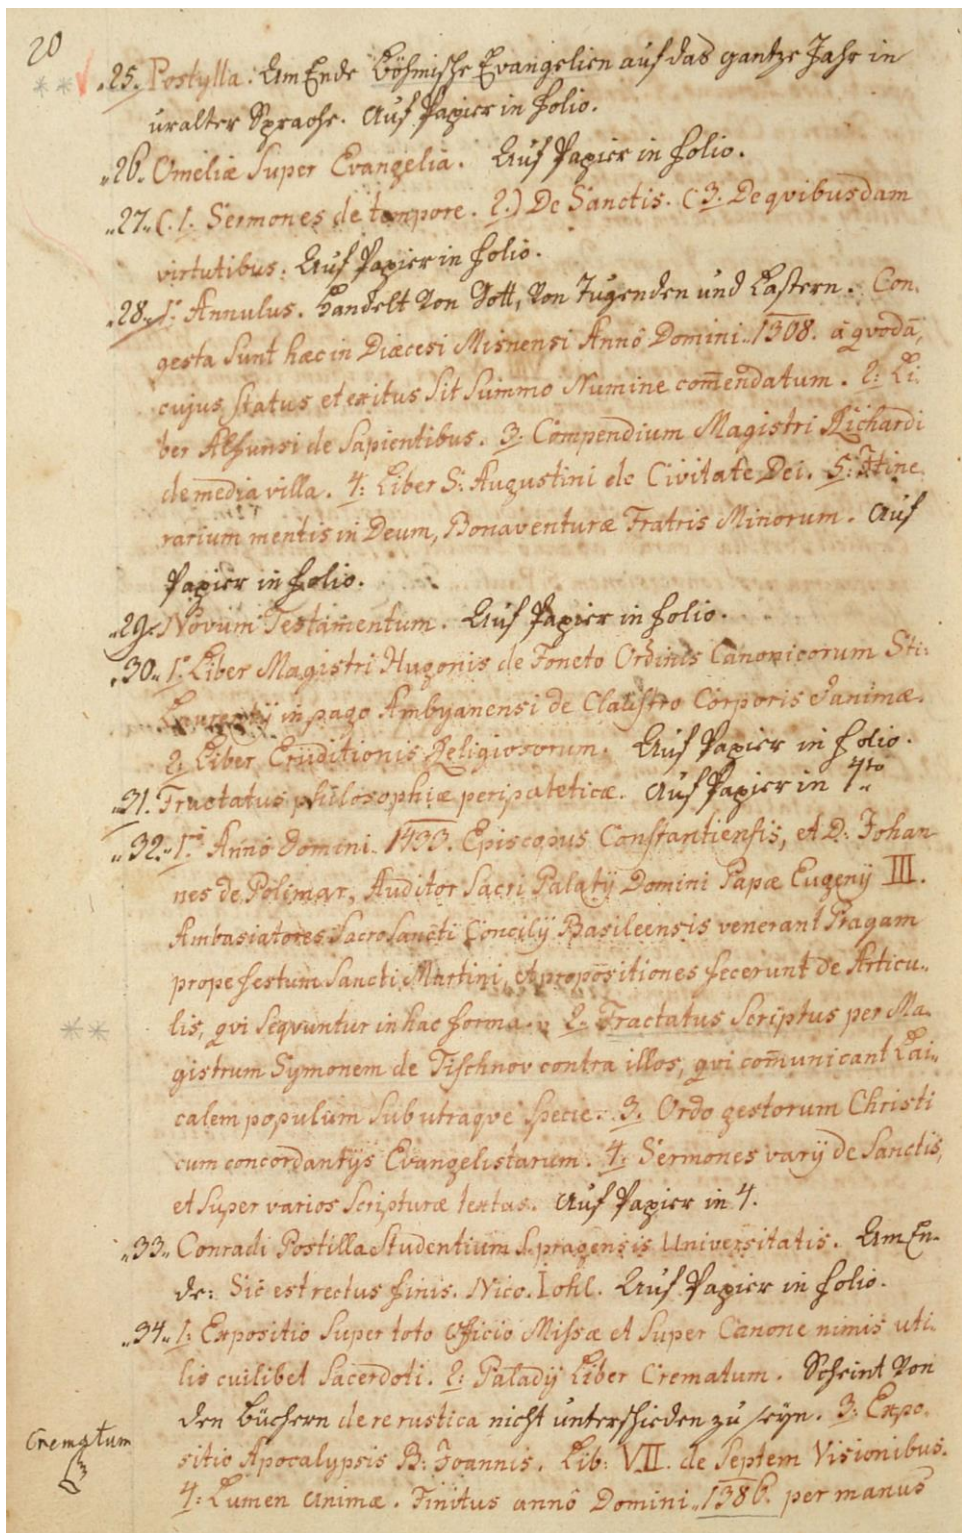 20
25. Postylla. Am Ende Böhmische Evangelien auf das gantze Jahr in
uralter Sprache. Auf Papier in folio.
26. Omeliæ Super Evangelia. Auf Papier in folio.
27. (. 1. Sermones de tempore. 2.) De Sanctis. (3. De qvibusdam
virtutibus. Auf Papier in folio.
28. 1. Annulus. Handelt von Gott, von Tugenden und Lastern. Con.
gesta sunt hæc in Diæcesi Misnensi Annô Domini 1308. â qvodā,
cujus status et exitus sit Summo Numine com̄endatum. 2: Li.
ber Alfunsi de Sapientibus. 3: Compendium Magistri Richardi
de media villa. 4: Liber S: Augustini de Civitate Dei. 5: Itine.
rarium mentis in Deum, Bonaventuræ Fratris Minorum. Auf
Papier in folio.
29. Novum Testamentum. Auf Papier in folio.
30. 1. Liber Magistri Hugonis de Foneto Ordinis Canonicorum Sti:
Laurentÿ in pago Ambyanensi de Claustro Corporis & animæ.
2: Liber Eruditionis Religiosorum. Auf Papier in folio.
31. Tractatus philosophiæ peripateticæ. Auf Papier in 4to
32. 1. Annô Domini 1433. Episcopus Constantiensis, et D: Johan
nes de Polimar, Auditor Sacri Palatÿ Domini Papæ Eugenÿ III.
Ambasiatores SacroSancti Concilÿ Basileensis venerant Pragam
prope festum Sancti Martini, et propositiones fecerunt de Articu..
lis, qvi seqvuntur in hac forma. 2: Tractatus Scriptus per Ma.
gistrum Symonem de Tischnov contra illos, qvi com̄unicant Lai..
calem populum sub utraqve specie. 3. Ordo gestorum Christi
cum concordantÿs Evangelistarum. 4: Sermones varÿ de Sanctis,
et super varios Scripturæ textus. Auf Papier in 4.
33. Conradi Postilla Studentium S. pragensis Universitatis. Am En-
de: Sic est rectus finis. Nico. Lohl. Auf Papier in folio.
34. 1: Expositio super toto Officio Missæ et super Canone nimis uti.
lis cuilibet Sacerdoti. 2: Paladÿ Liber Crematum. Scheint von
den büchern de re rustica nicht unterschieden zu seyn. 3: Expo.
Crematum
sitio Apocalypsis B: Joannis. Lib: VII. de Septem Visionibus.
4: Lumen animæ. Finitus annô Domini 1386. per manus